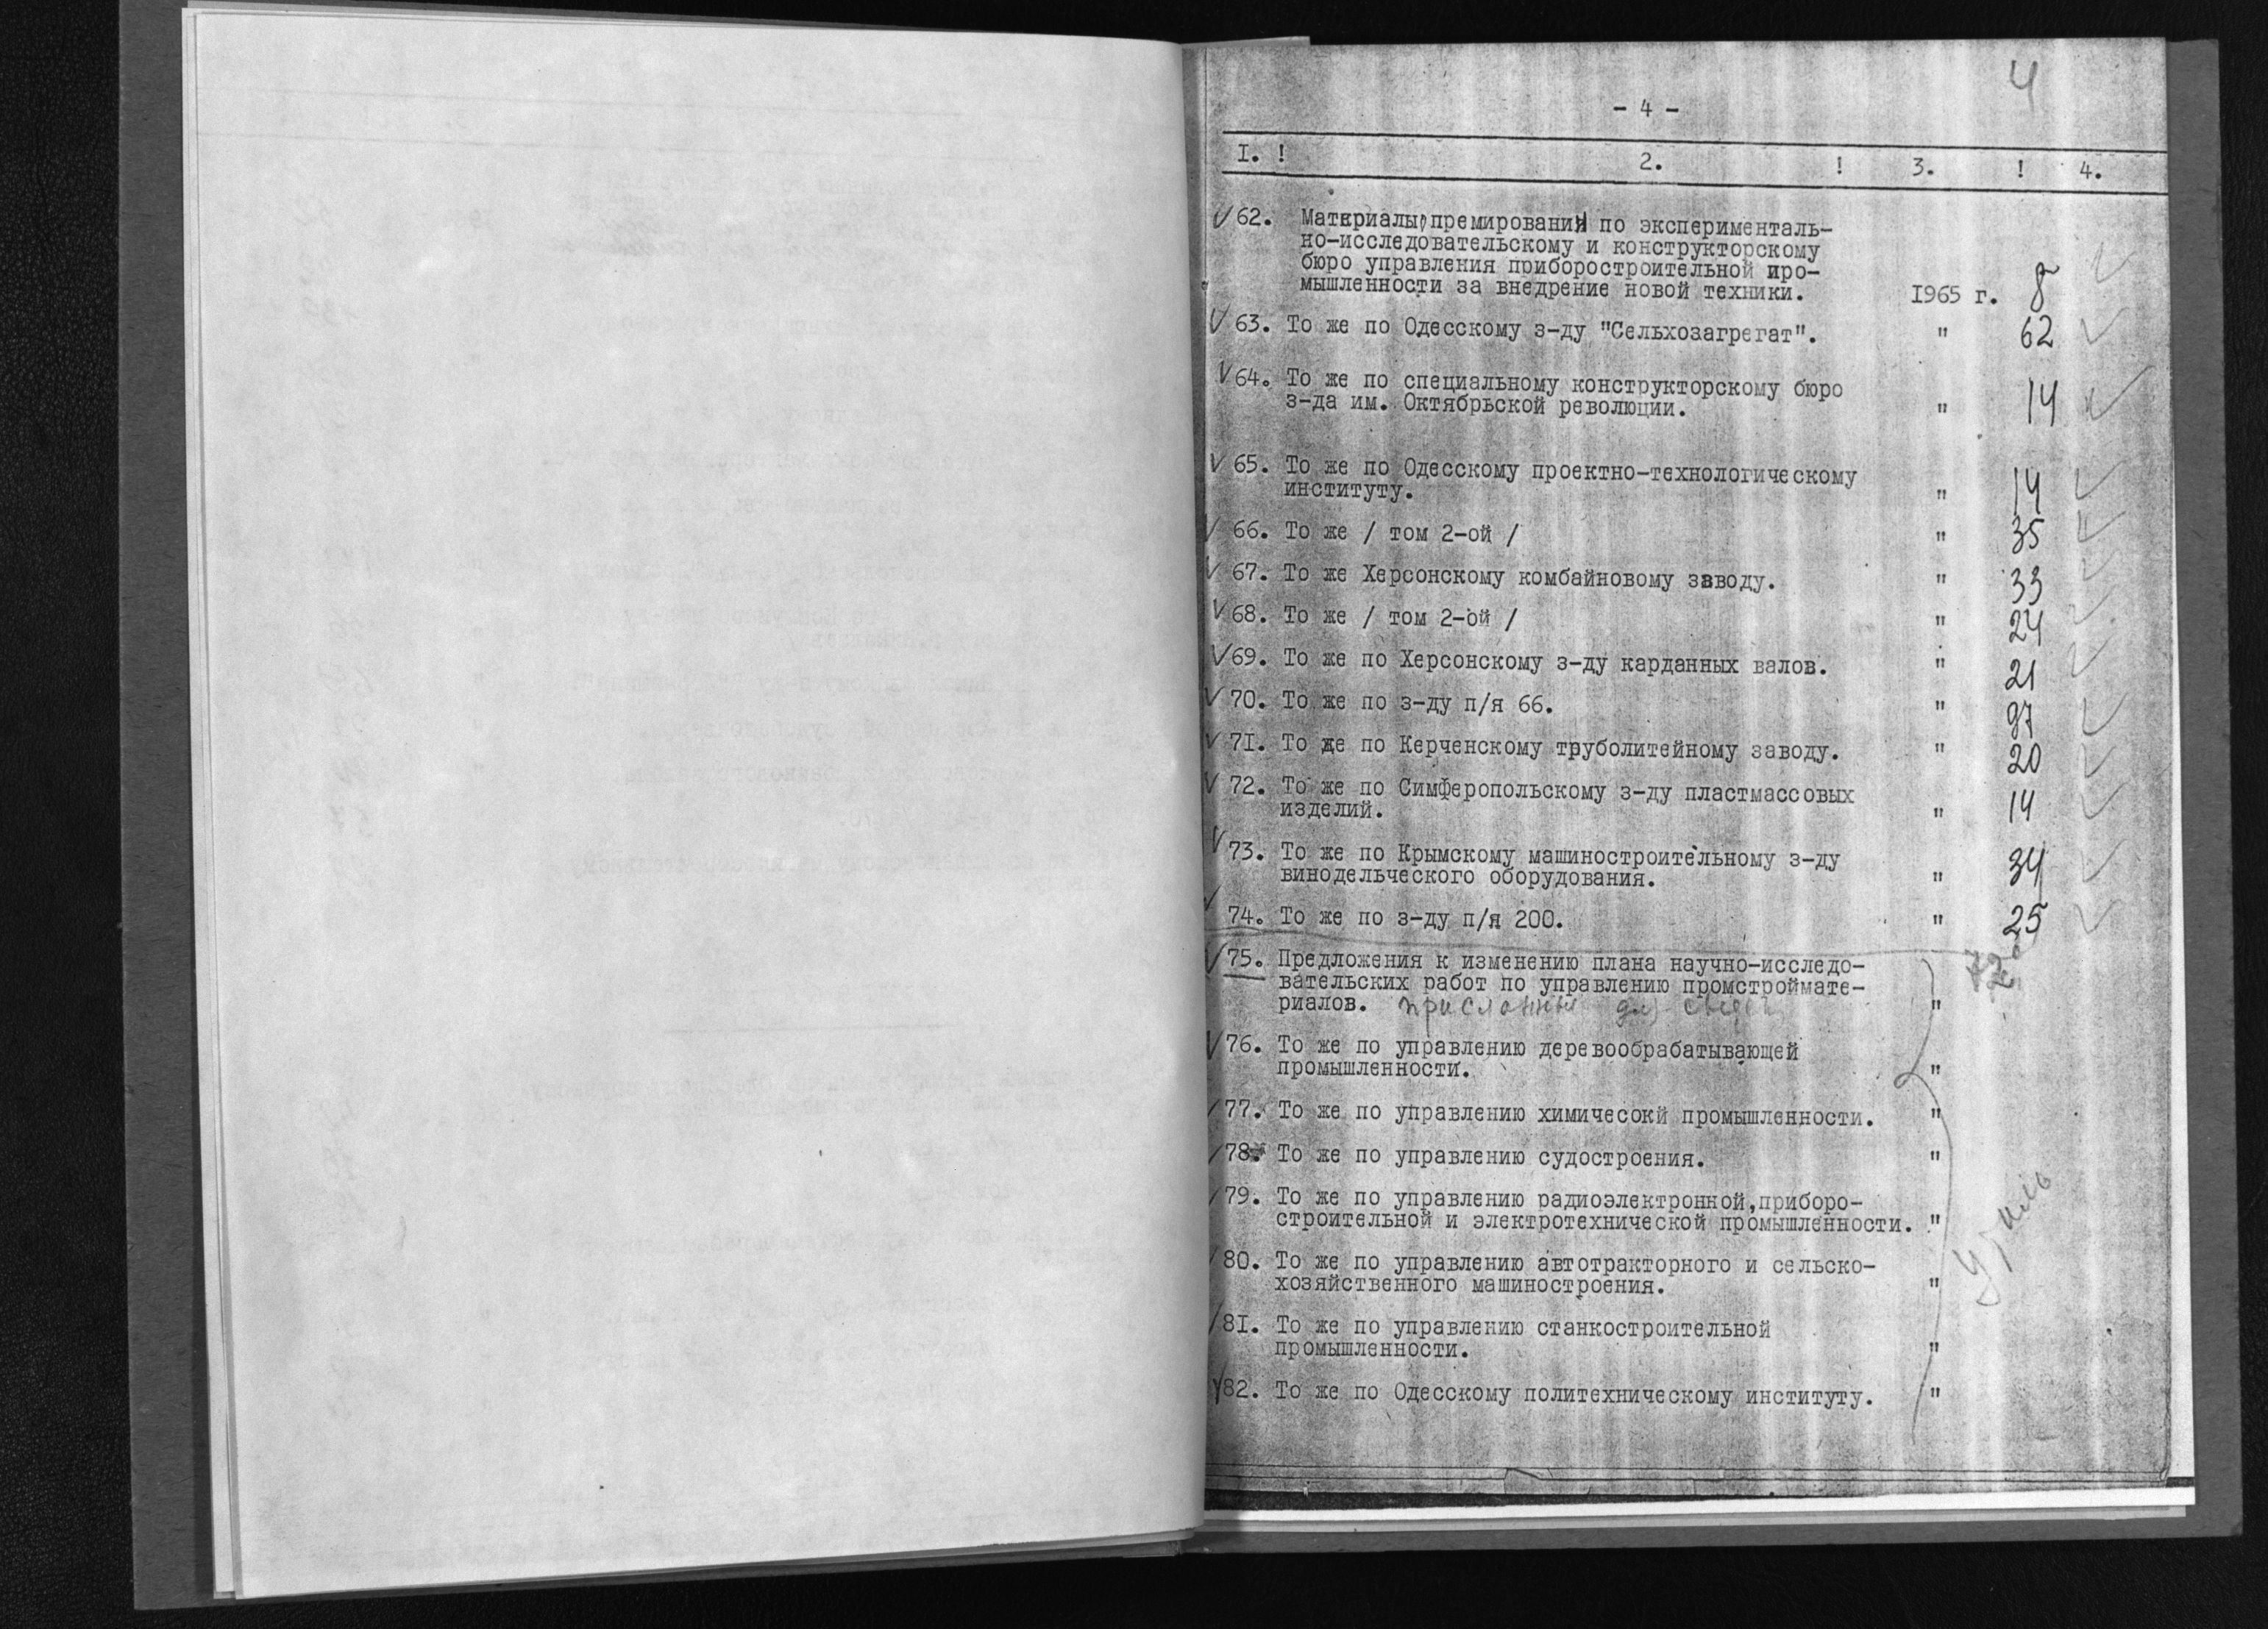 4
- 4 -
I. ! 2. ! 3. ! 4.
62. Материалы премирования по эксперименталь-
но-исследовательскому и конструкторскому
бюро управления приборостроительной про-
мышленности за внедрение новой техники. 1965 г. 8
63. То же по Одесскому з-ду "Сельхозагрегат". " 62
64. То же по специальному конструкторскому бюро
з-да им. Октябрьской революции. " 14
65. То же по Одесскому проектно-технологическому
институту. " 14
66. То же / том 2-ой / " 35
67. То же Херсонскому комбайновому заводу. " 33
68. То же / том 2-ой / " 24
69. То же по Херсонскому з-ду карданных валов. " 21
70. То же по з-ду п/я 66. " 97
71. То де по Керченскому труболитейному заводу. " 20
72. То же по Симферопольскому з-ду пластмассовых
изделий. " 14
73. То же по Крымскому машиностроительному з-ду
винодельческого оборудования. " 34
74. То же по з-ду п/я 200. " 25
75. Предложения к изменению плана научно-исследо-
вательских работ по управлению промстроймате-
риалов. присланные для "
76. То же по управлению деревообрабатывающей
промышленности. "
77. То же по управлению химичесокй промышленности. "
78. То же по управлению судостроения. "
79. То же по управлению радиоэлектронной,приборо-
строительной и электротехнической промышленности. "
80. То же по управлению автотракторного и сельско-
хозяйственного машиностроения. "
81. То же по управлению станкостроительной
промышленности. "
82. То же по Одесскому политехническому институту. "